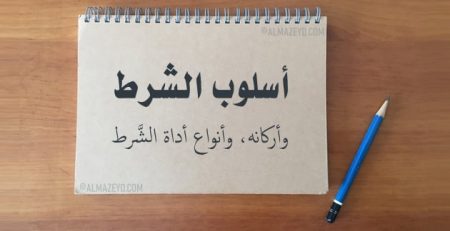 ©ALMAZEYD.COM
أسلوب الشرط
وأركانه، وأنواع أداة الشَّرط
©ALMAZEYD.COM